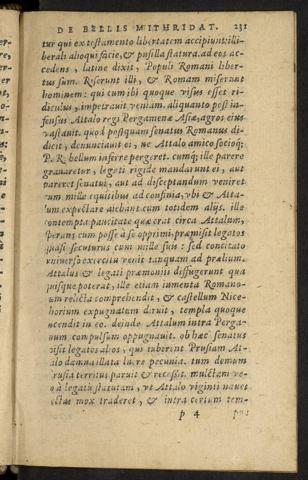 DE BELLIS MITHRIDAT. 231
tur qui ex testamento libertatem accipiunt: illi-
berali alioqui facie, & pusilla statura. ad eos ac-
cedens, latine dixit, Populi Romani liber-
tus sum. Riserunt illi, & Romam miserunt
hominem: qui cum ibi quoque visus esset ri-
diculus, impetrauit veniam. aliquanto post in-
fensus Attalo regi Pergamenæ Asiæ, agros eius
vastauit. quod postquam senatus Romanus di-
dicit, denunciauit ei, ne Attalo amico socioq;
P. R. bellum inferre pergeret. cumq; ille parere
grauaretur, legati rigide mandarunt ei, aut
pareret senatui, aut ad disceptandum veniret
cum mille equitibus ad confinia, vbi & Atta-
lum expectare aiebant cum totidem alijs. ille
contempta paucitate quæ erat circa Attalum,
sperans eum posse à se opprimi, præmisit legatos
quasi secuturus cum mille suis: sed concitato
vniuerso exercitu venit tanquam ad prælium.
Attalus & legati præmoniti diffugerunt qua
quisque poterat, ille etiam iumenta Romano-
rum relicta comprehendit, & castellum Nice-
phorium expugnatum diruit, templa quoque
incendit in eo. deinde Attalum intra Perga-
mum compulsum oppugnauit. ob hæc senatus
misit legatos alios, qui iuberent Prusiam At-
talo damna illata luere pecunia. tum demum
Prusia territus paruit & recessit. mulctam ve-
ro à legatis statutam, vt Attalo viginti naues
tectas mox traderet, & intra certum tem-
p 4
pus